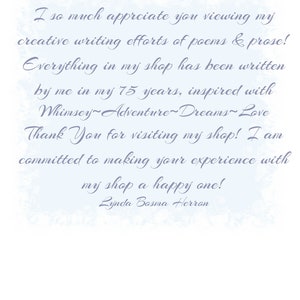 I so much appreciate you viewing my
creative writing efforts of poems & prose!
Everything in my shop has been written
by me in my 75 years, inspired with
Whimsey~Adventure~Dreams~Love
Thank You for visiting my shop! I am
committed to making your experience with
my shop a happy one!
Lynda Bosma Herron